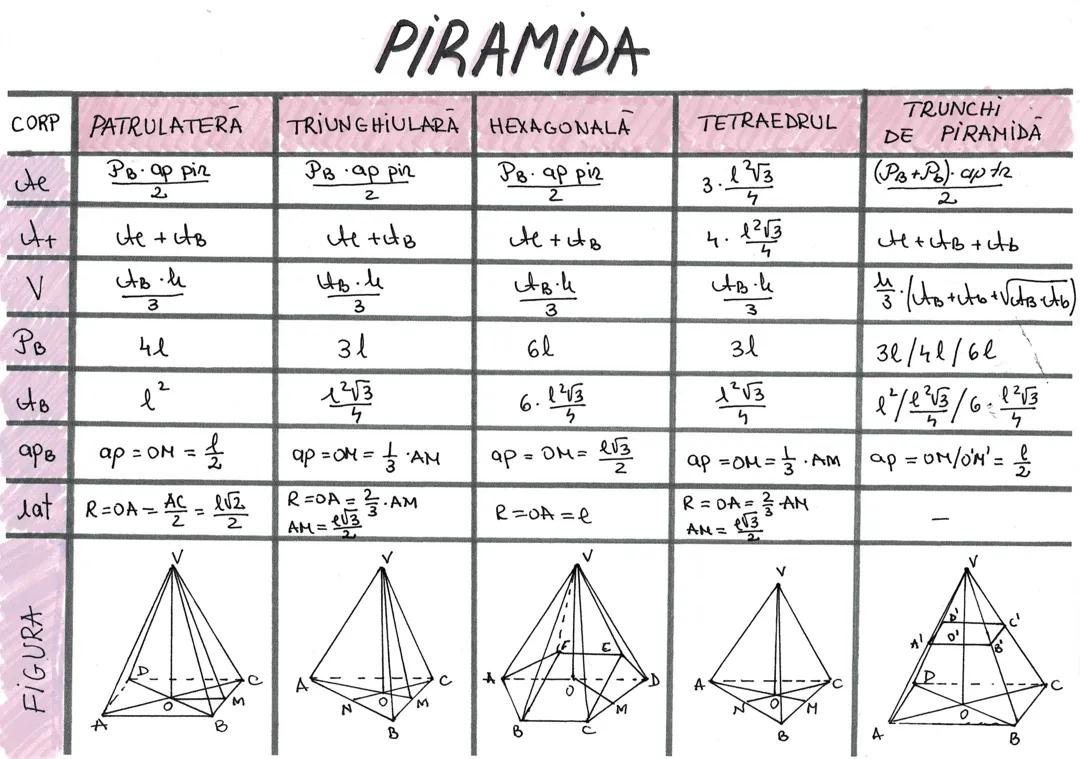 PIRAMIDA
CORP PATRULATERĂ TRIUNGHIULARĂ HEXAGONALĂ TETRAEDRUL TRUNCHI DE PIRAMIDĂ
Aℓ P_B · ap pir / 2 P_B · ap pir / 2 P_B · ap pir / 2 3 · ℓ²√3 / 4 (P_B + P_b) · ap tr / 2
A_t Aℓ + A_B Aℓ + A_B Aℓ + A_B 4 · ℓ²√3 / 4 Aℓ + A_B + A_b
V A_B · h / 3 A_B · h / 3 A_B · h / 3 A_B · h / 3 h/3 · (A_B + A_b + √A_B · A_b)
P_B 4ℓ 3ℓ 6ℓ 3ℓ 3ℓ/4ℓ/6ℓ
A_B ℓ² ℓ²√3 / 4 6 · ℓ²√3 / 4 ℓ²√3 / 4 ℓ² / ℓ²√3/4 / 6 · ℓ²√3/4
ap_B ap = OM = ℓ/2 ap = OM = 1/3 · AM ap = OM = ℓ√3/2 ap = OM = 1/3 · AM ap = OM/O'M' = ℓ/2
lat R = OA = AC/2 = ℓ√2/2 R = OA = 2/3 · AM AM = ℓ√3/2 R = OA = ℓ R = OA = 2/3 · AM AM = ℓ√3/2 —
FIGURA
V D C O M A B
V A C N O M B
V F E A O D M B C
V A C N O M B
V D' C' A' O' B' D C O A B